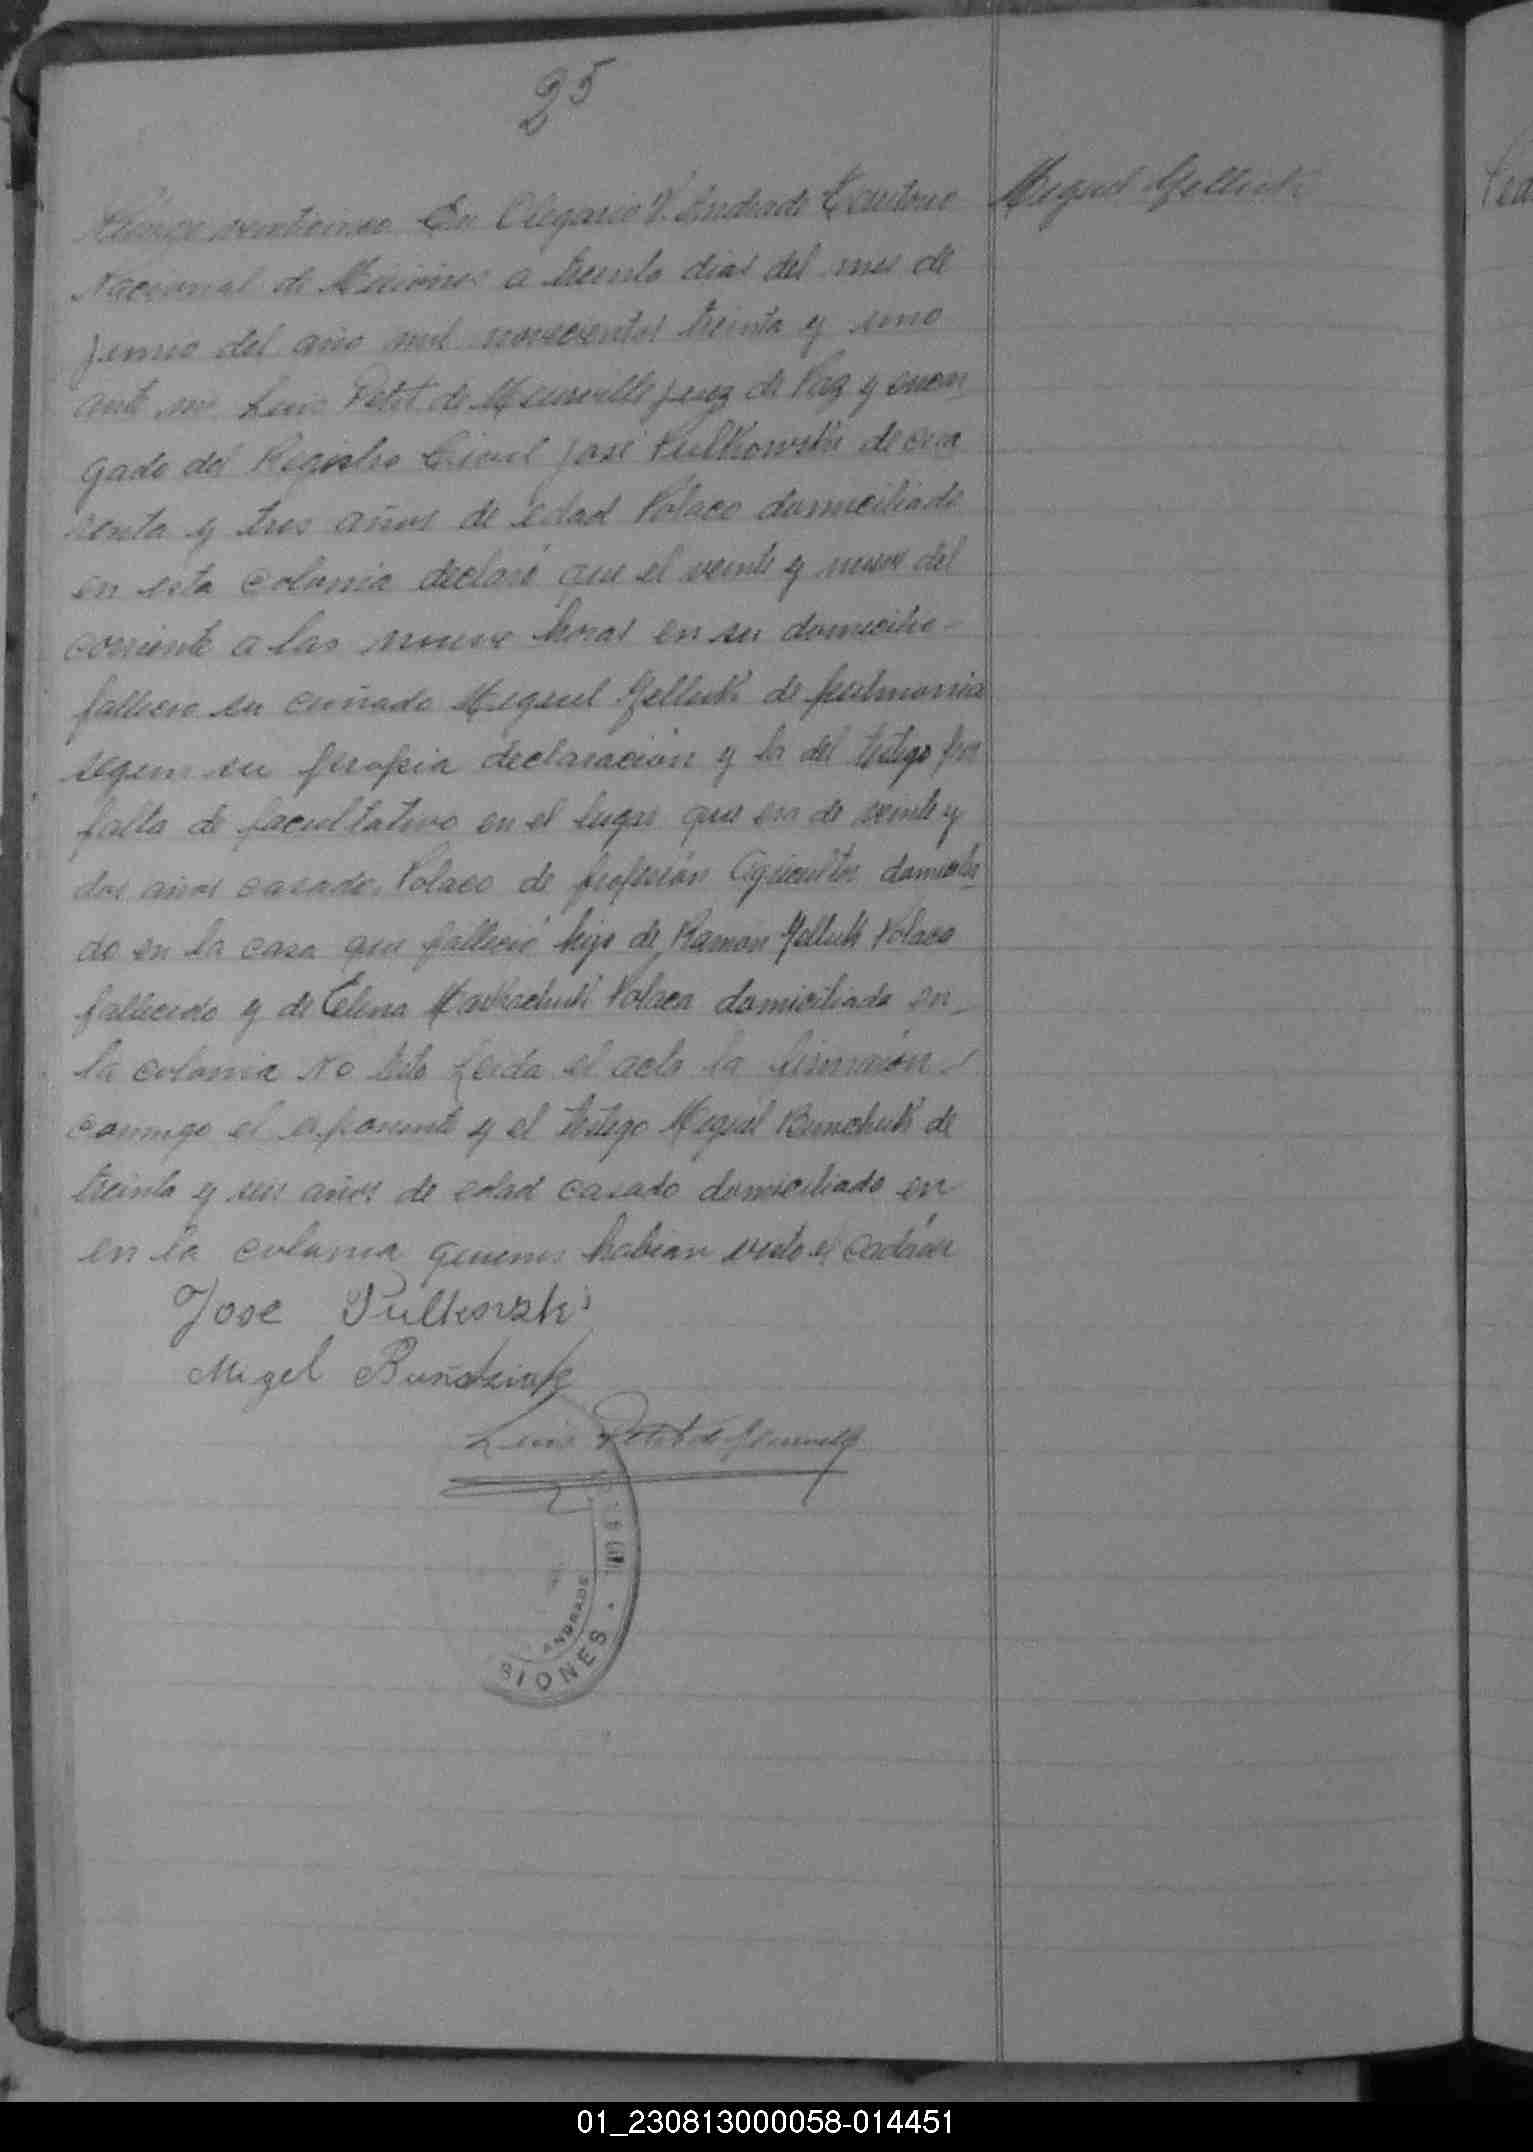 25
Miguel Melluk
Número veinticinco En Olegario V. Andrade Territorio
Nacional de Misiones a treinta dias del mes de
junio del año mil novecientos treinta y uno
ante mi Luis Petit de Meurville juez de Paz y encar
gado del Registro Civil José Pulkowski de cua
renta y tres años de edad Polaco domiciliado
en esta colonia declaró que el veinte y nueve del
corriente a las nueve horas en su domicilio
fallecio su cuñado Miguel de pulmonia
segun su propia declaración y la del testigo por
falta de facultativo en el lugar que era de veinte y
dos años casado, Polaco de profesión Agricultor domicilia
do en la casa que falleció hijo de Ramón Polaco
fallecido y de Elena Polaca domiciliada en
la colonia No testo Leida el acta la firmaron
conmigo el exponente y el testigo Miguel de
treinta y seis años de edad casado domiciliado en
en la colonia quienes habian visto el cadáver
Jose
Migel
Luis Petit de Meurville
SIONES
ANDRADE
01_230813000058-014451